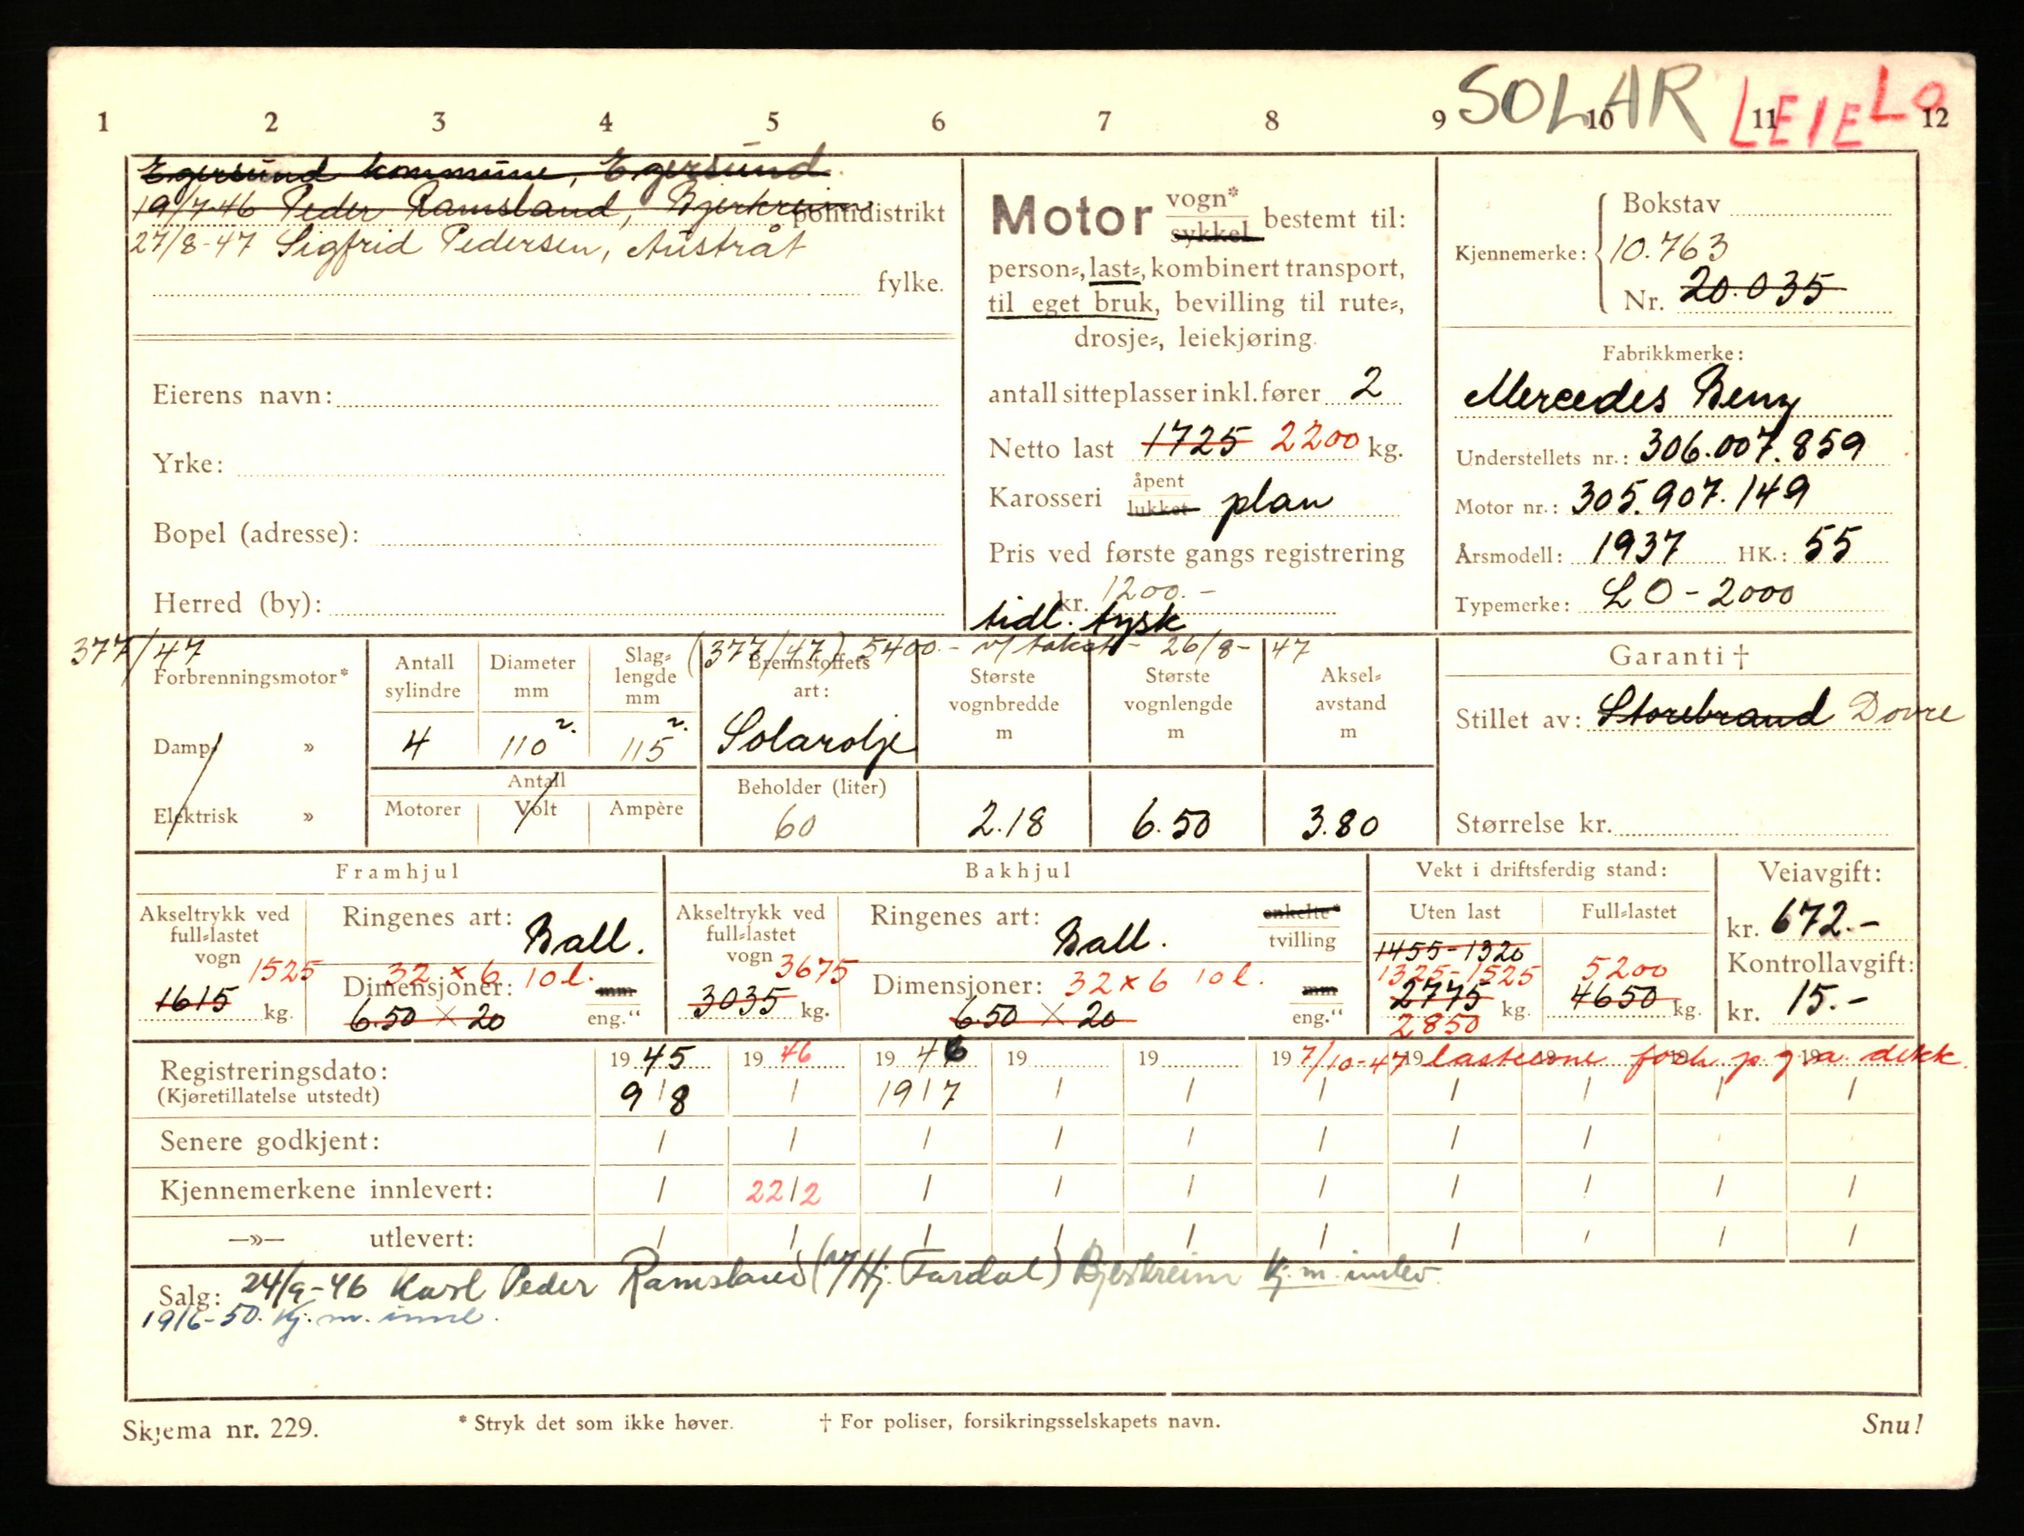 SOLAR LEIE LO
1 2 3 4 5 6 7 8 9 10 11 12
Egersund kommune, Egersund
19/7-46 Peder Ramsland, Bjerkreim politidistrikt
27/8-47 Sigfrid Pedersen, Austråt
fylke.
Eierens navn:
Yrke:
Bopel (adresse):
Herred (by):
Motor vogn* sykkel bestemt til:
person=, last=, kombinert transport,
til eget bruk, bevilling til rute=,
drosje=, leiekjøring.
antall sitteplasser inkl. fører 2
Netto last 1725 2200 kg.
Karosseri åpent lukket plan
Pris ved første gangs registrering
kr. 1200.-
tidl. tysk
Bokstav
Kjennemerke: 10.763
Nr. 20.035
Fabrikkmerke:
Mercedes Benz
Understellets nr.: 306.007.859
Motor nr.: 305.907.149
Årsmodell: 1937 HK.: 55
Typemerke: LO-2000
377/47 (377/47) 5400.- v/ takst - 26/8-47
Forbrenningsmotor*
Damp »
Elektrisk »
Antall sylindre
4
Diameter mm
110².
Slag=
lengde
mm
115².
Antall
Motorer Volt Ampère
Brennstoffets
art:
Solarolje
Beholder (liter)
60
Største
vognbredde
m
2.18
Største
vognlengde
m
6.50
Aksel=
avstand
m
3.80
Garanti †
Stillet av: Storebrand Dovre
Størrelse kr.
Framhjul
Akseltrykk ved
full=lastet
vogn 1525
1615 kg.
Ringenes art: Ball.
32 x 6 10 l.
Dimensjoner: mm
6.50 x 20 eng."
Bakhjul
Akseltrykk ved
full=lastet
vogn 3675
3035 kg.
Ringenes art: Ball. enkelte* tvilling
Dimensjoner: 32 x 6 10 l. mm
6.50 x 20 eng."
Vekt i driftsferdig stand:
Uten last Full=lastet
1455-1320
1325-1525 5200
2775 kg. 4650 kg.
2850
Veiavgift:
kr. 672.-
Kontrollavgift:
kr. 15.-
Registreringsdato: 1945 1946 1946 19 19 19 7/10-47 19 lasteevne forh. p g a dekk.
(Kjøretillatelse utstedt) 9/8 / 19/7 / / / / / / /
Senere godkjent: / / / / / / / /
Kjennemerkene innlevert: / 22/2 / / / / / / / /
—»— utlevert: / / / / / / / / / /
Salg: 24/9-46 Karl Peder Ramsland (v/ Hj. Tardal) Bjerkreim Kj. m. innlev.
19/6-50. Kj. m. innl.
Skjema nr. 229. * Stryk det som ikke høver. † For poliser, forsikringsselskapets navn. Snu!